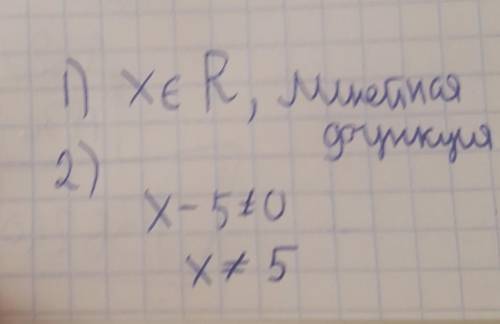 1) x ∈ R, линейная
функция
2)
x - 5 ≠ 0
x ≠ 5